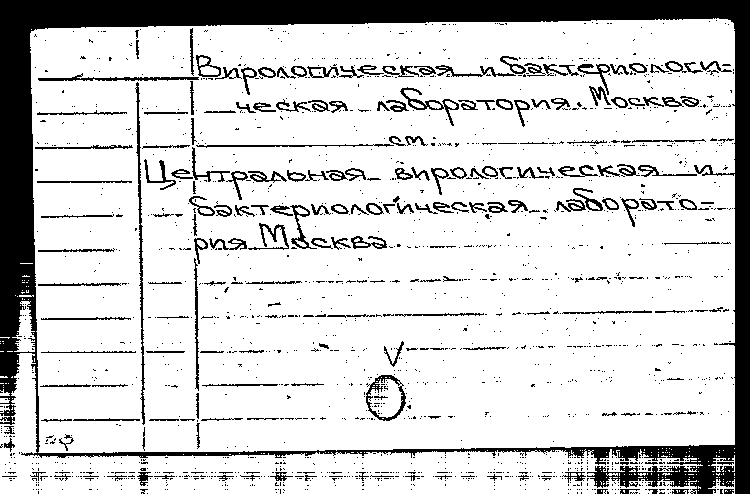 Вирологическая и бактериологи-
ческая лаборатория. Москва.
см.
Центральная вирологическая и
бактериологическая лаборато-
рия Москва.